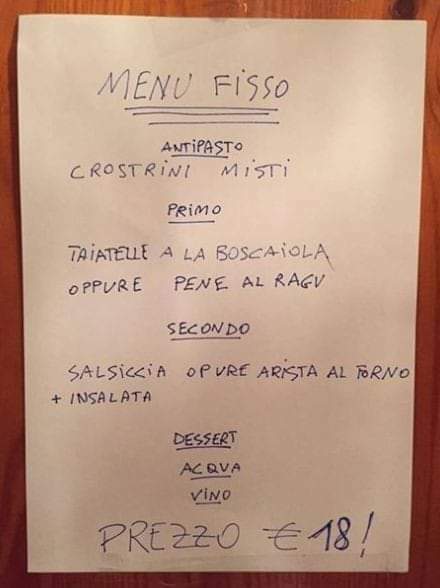 MENU FISSO
ANTIPASTO
CROSTRINI MISTI
PRIMO
TAIATELLE A LA BOSCAIOLA
OPPURE PENE AL RAGU
SECONDO
SALSICCIA OPURE ARISTA AL FORNO
+ INSALATA
DESSERT
ACQUA
VINO
PREZZO € 18!